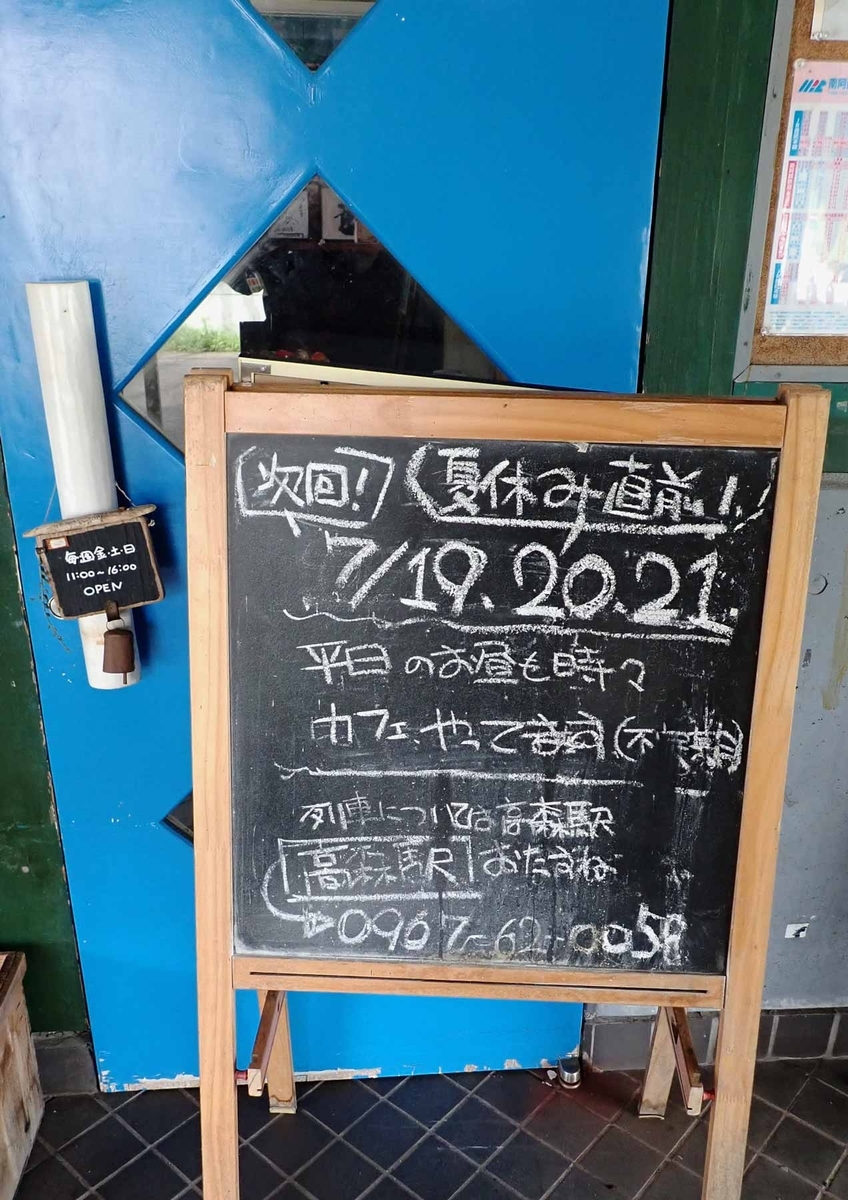 次回！ 夏休み直前！
7/19.20.21.
平日のお昼も時々
カフェ、やってます(不定期)
列車については高森駅
高森駅 おたずね
0967-62-0058
毎週金・土・日
11:00~16:00
OPEN
南阿